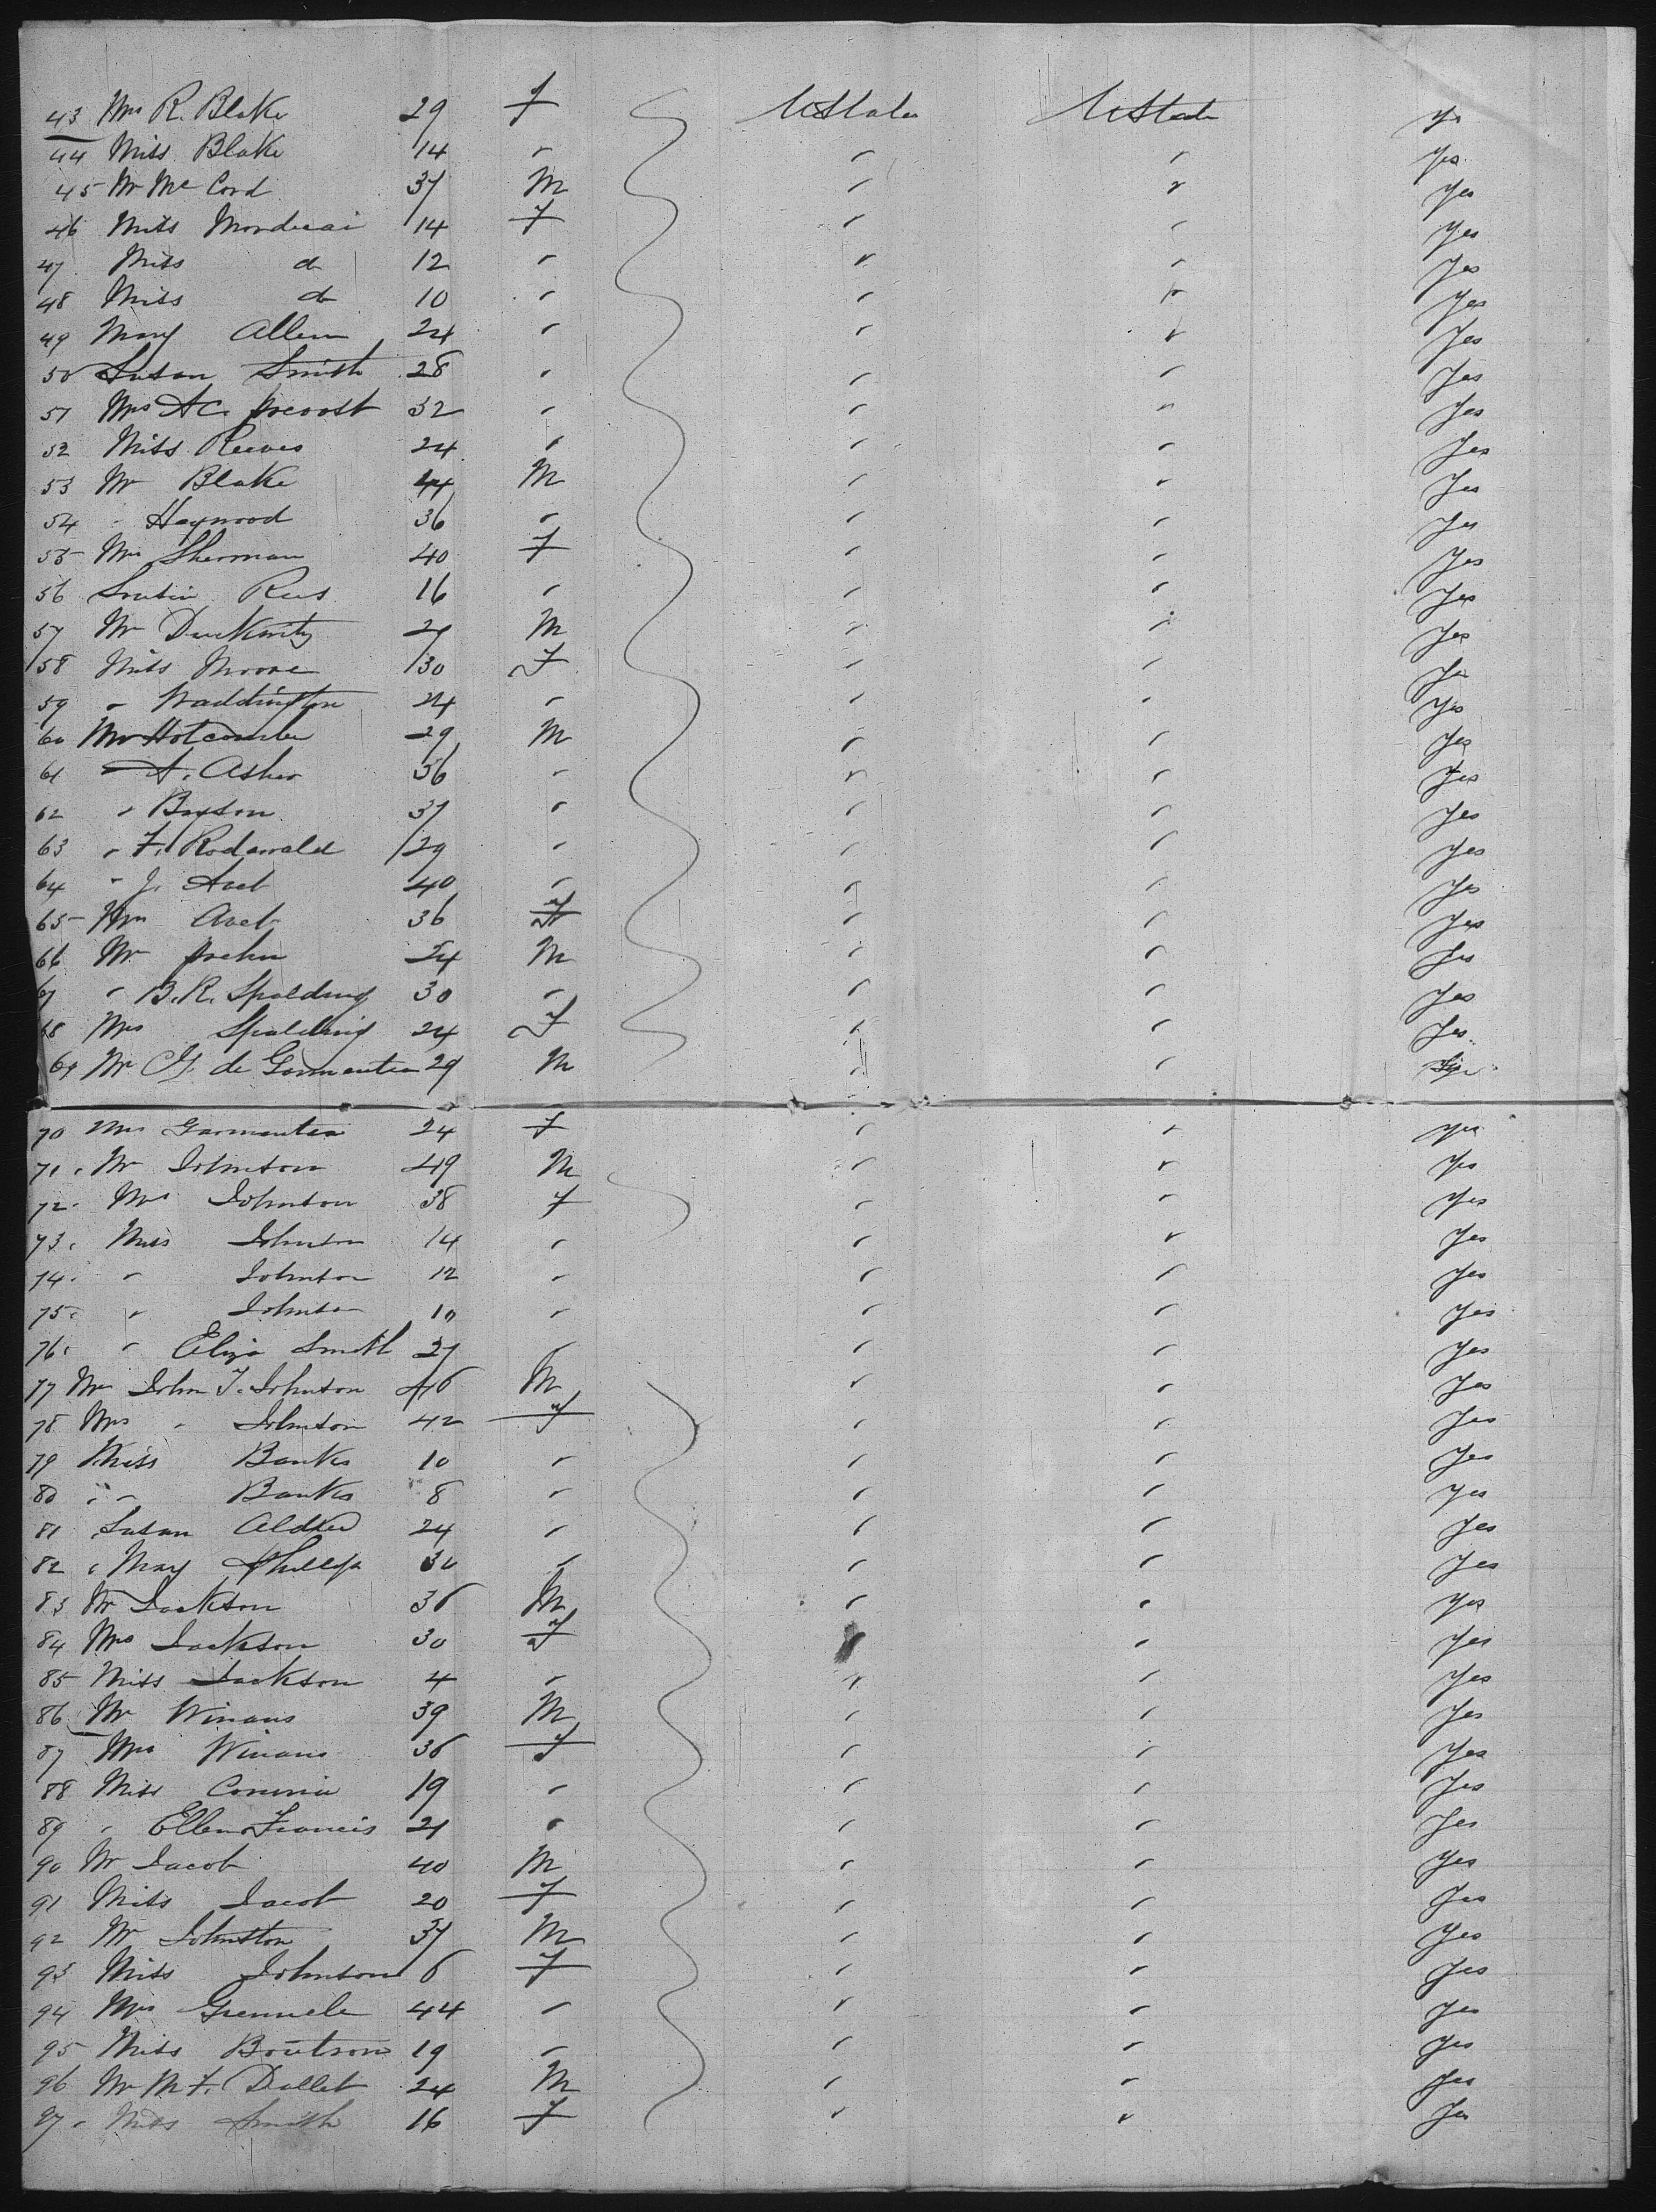 43 Mrs R. Blake 29 f UStates UStates yes
44 Miss Blake 14 " " " yes
45 Mr McCord 37 M " " yes
46 Miss Mordecai 14 f " " yes
47 Miss do 12 " " " yes
48 Miss do 10 " " " yes
49 Mary Allen 24 " " " yes
50 Susan Smith 28 " " " yes
51 Mrs A C. prevost 32 " " " yes
52 Miss Reeves 24 " " " yes
53 Mr Blake 44 M " " yes
54 " Haywood 36 " " " yes
55 Mrs Sherman 40 f " " yes
56 Rees 16 " " " yes
57 Mr M " " yes
58 Miss Moore 30 f " " yes
59 " Waddington 24 " " " yes
60 Mr Holcombe 29 M " " yes
61 A. Asher 56 " " " yes
62 " Boyton 37 " " " yes
63 " F. Rodawald 29 " " " yes
64 " J. Avet 40 " " " yes
65 Mrs Avet 36 f " " yes
66 Mr M " " yes
67 " B. R. Spalding 30 " " " yes
68 Mrs Spalding 24 f " " yes
69 Mr G. de Garmentia 29 M " "
70 Mrs Garmentia 24 f " " yes
71. Mr Johnston 49 M " " yes
72. Mrs Johnston 38 f " " yes
73. Miss Johnston 14 " " " yes
74. " Johnston 12 " " " yes
75. " Johnston 10 " " " yes
76. " Eliza Smith 27 " " " yes
77 Mr John T. Johnston 46 M " " yes
78 Mrs " Johnston 42 f " " yes
79 Miss Banks 10 " " " yes
80 " " Banks 8 " " " yes
81 Susan 24 " " " yes
82 " Mary Phillips 30 " " " yes
83 Mr Jackson 36 M " " yes
84 Mrs Jackson 30 f " " yes
85 Miss Jackson 4 " " " yes
86 Mr Winans 39 M " " yes
87 Mrs Winans 36 f " " yes
88 Miss 19 " " " yes
89 " Ellen Francis 21 " " " yes
90 Mr Jacob 40 M " " yes
91 Miss Jacob 20 f " " yes
92 Mr Johnston 37 M " " yes
93 Miss Johnston 6 f " " yes
94 Mrs 44 " " " yes
95 Miss Boutron 19 " " " yes
96 Mr M F. Dallet 24 M " " yes
97 " Miss Smith 16 f " " yes